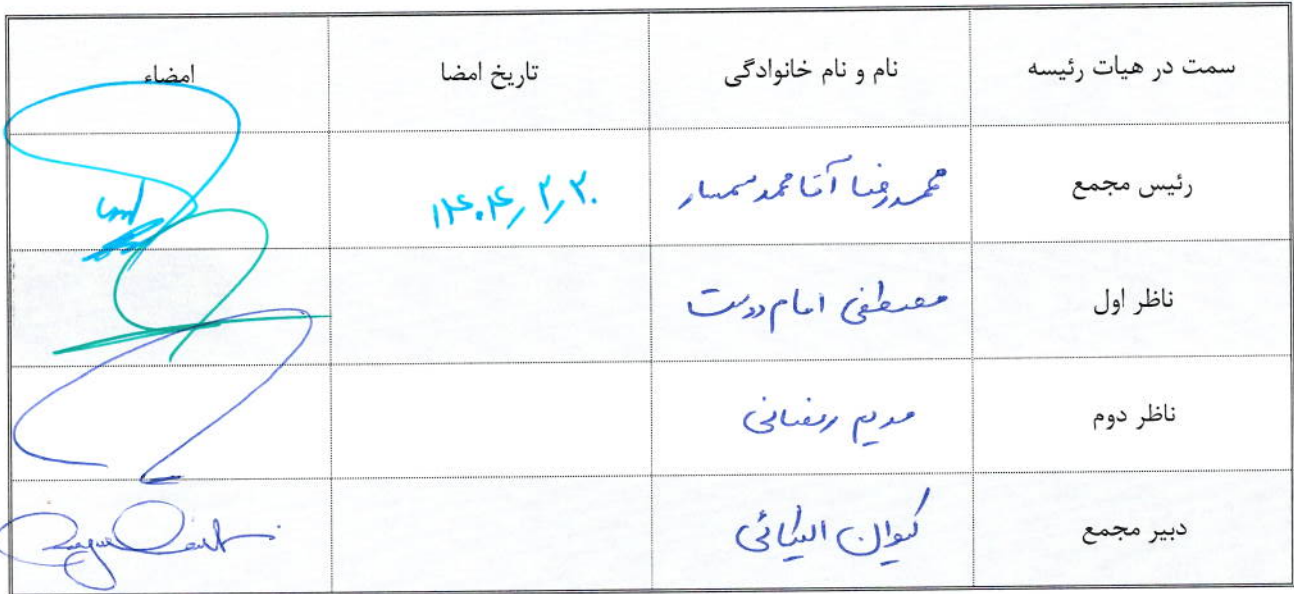 سمت در هیات رئیسه نام و نام خانوادگی تاریخ امضا امضاء
رئیس مجمع محمدرضا آقامحمد سمسار ۱۴۰۴/۲/۲۰
ناظر اول مصطفی امام دوست
ناظر دوم مریم رمضانی
دبیر مجمع کیوان الیکائی